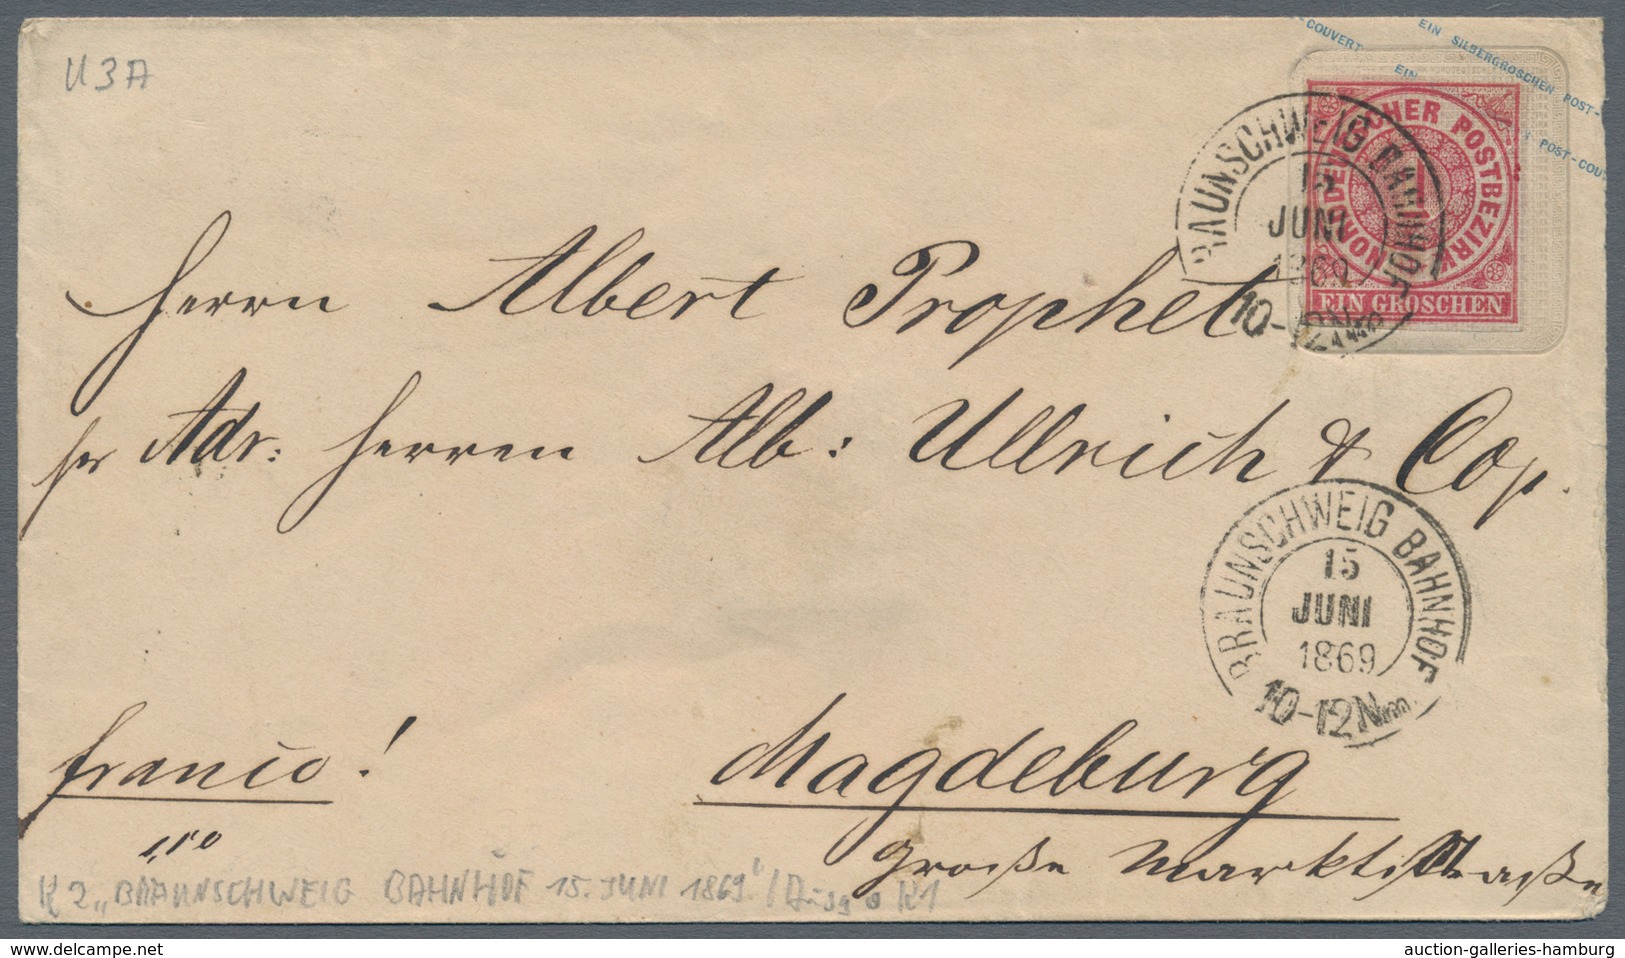 U 3 A
COUVERT
EIN SILBERGROSCHEN POST-
EIN
POST-COU
NORDDEUTSCHER POSTBEZIRK
1
EIN GROSCHEN
BRAUNSCHWEIG BAHNHOF
15
JUNI
1869
10-12N
Herrn Albert Prophet
pr Adr: Herren Alb: Ullrich & Cop.
BRAUNSCHWEIG BAHNHOF
15
JUNI
1869
10-12N
franco!
Magdeburg
große Marktstraße
K2 „BRAUNSCHWEIG BAHNHOF 15. JUNI 1869" / K1
delcampe.net
auction-galleries-hamburg